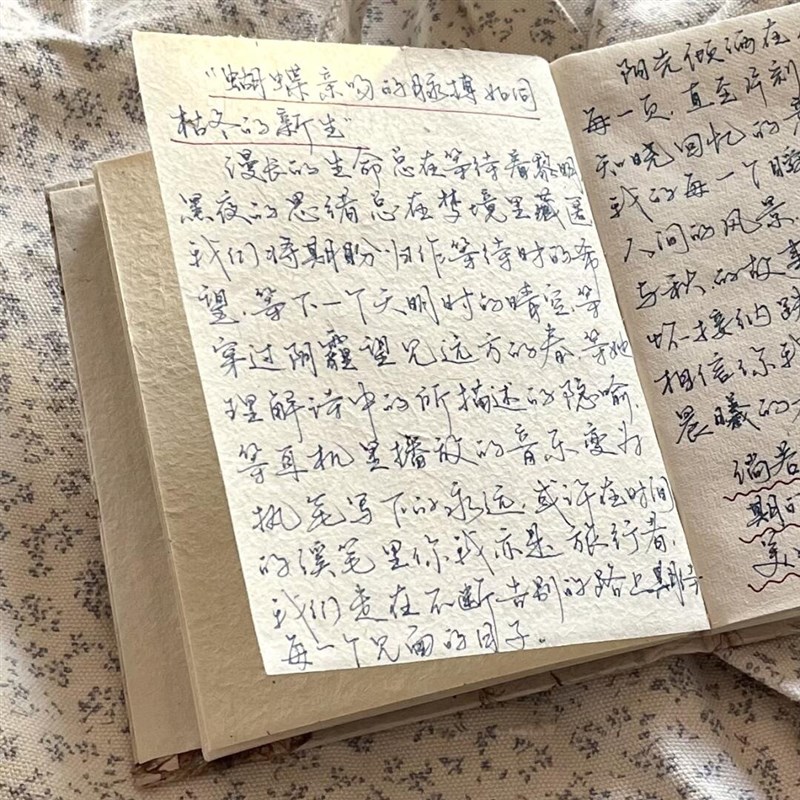 “蝴蝶亲吻的脉搏如同
枯冬的新生”
漫长的生命总在等待着黎明
黑夜的思绪总在梦境里藏匿
我们将期盼归作等待时的希
望.等下一个天明时的晴空.等
穿过阴霾望见远方的春.等她
理解诗中的所描述的隐喻.
等耳机里播放的音乐变为
执笔写下的永远.或许在时间
的溪笔里你我亦是旅行者.
我们走在不断告别的路上期待
每一个见面的日子.
阳光倾洒在
每一页.直至片刻
知晓回忆的
我的每一个瞬
人间的风景.
与秋的故事
怀接纳
相信你我
晨曦的
倘若
期
美